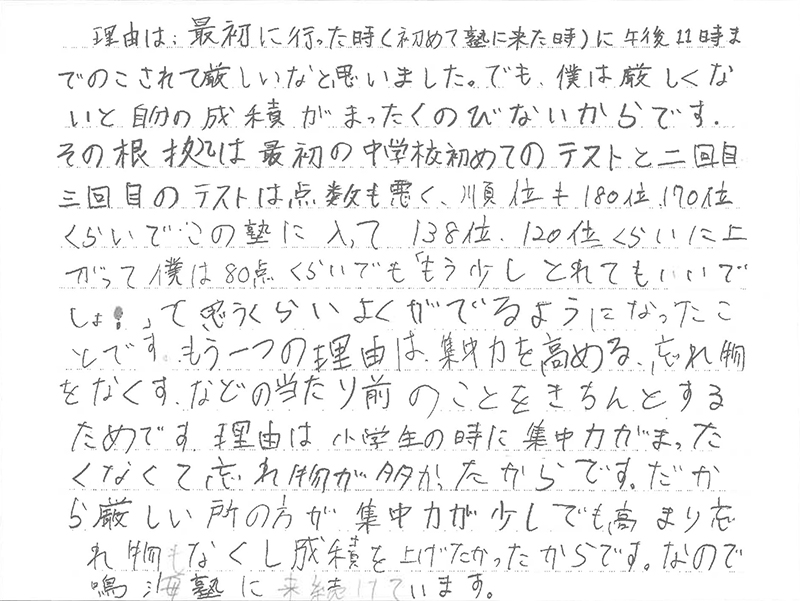 理由は、最初に行った時(初めて塾に来た時)に午後11時ま
でのこされて厳しいなと思いました。でも、僕は厳しくな
いと自分の成積がまったくのびないからです.
その根拠は最初の中学校初めてのテストと二回目
三回目のテストは点数も悪く、順位も180位、170位
くらいで、この塾に入って138位、120位くらいに上
がって僕は80点くらいでも「もう少しとれてもいいで
しょ!」って思うくらいよくがでるようになったこ
とです。もう一つの理由は、集中力を高める、忘れ物
をなくす、などの当たり前のことをきちんとする
ためです。理由は小学生の時に集中力がまった
くなくて忘れ物が多かったからです。だか
ら厳しい所の方が集中力が少しでも高まり忘
れ物もなくし成積を上げたかったからです。なので
鳴海塾に来続けています。